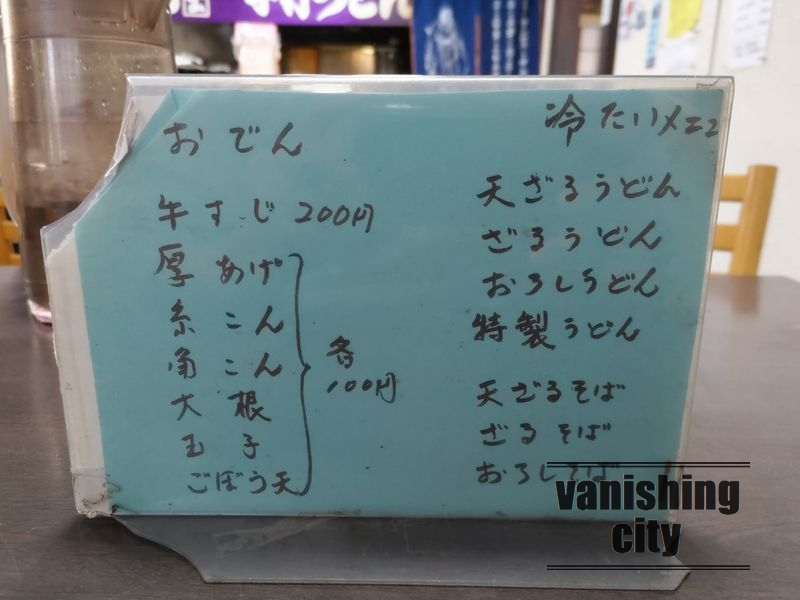 手打うどん
おでん
牛すじ 200円
厚あげ
糸こん
角こん
大根
玉子
ごぼう天
各
100円
冷たいメニュー
天ざるうどん
ざるうどん
おろしうどん
特製うどん
天ざるそば
ざるそば
おろしそば
vanishing
city